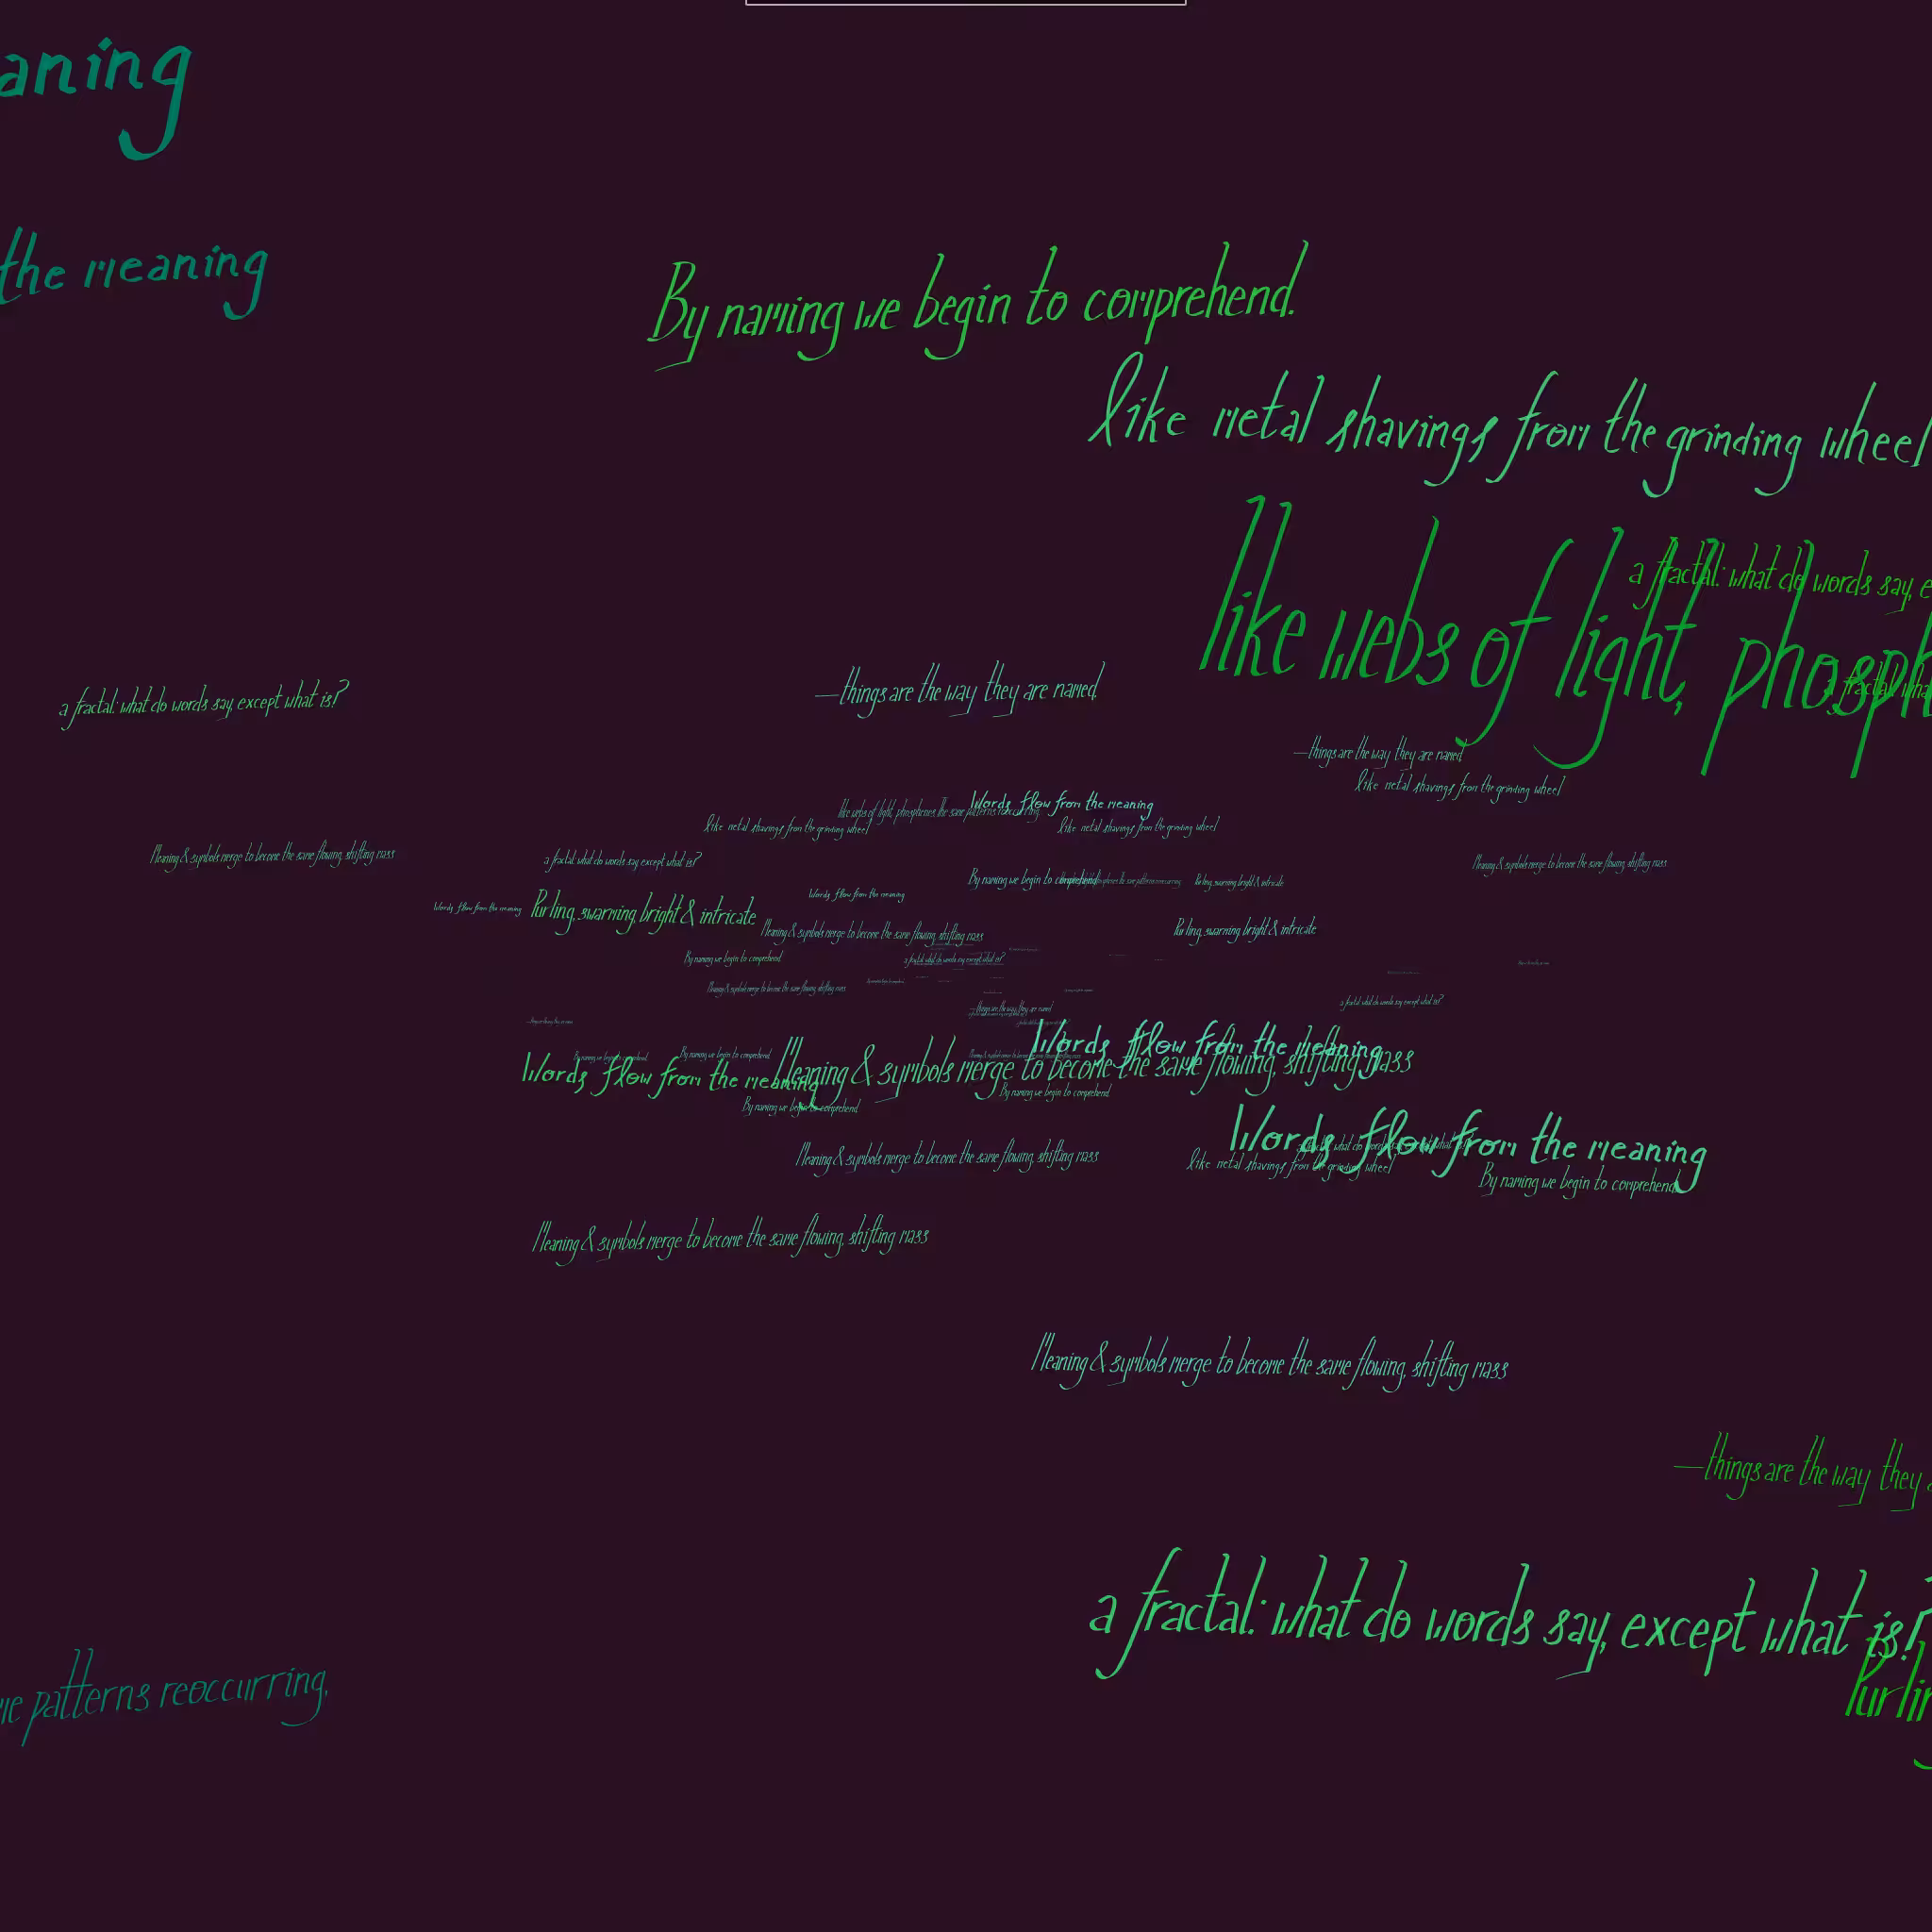 aning
the meaning
By naming we begin to comprehend.
like metal shavings from the grinding wheel
like webs of light, phosph
a fractal: what do words say, e
a fractal: what do words say, except what is?
—things are the way they are named.
a fractal: wha
—things are the way they are named.
like metal shavings from the grinding wheel
Words flow from the meaning
like webs of light, phosphenes, the same patterns reoccurring,
like metal shavings from the grinding wheel
like metal shavings from the grinding wheel
Meaning & symbols merge to become the same flowing, shifting mass
a fractal: what do words say, except what is?
Meaning & symbols merge to become the same flowing, shifting mass
By naming we begin to comprehend.
phosphenes, the same patterns reoccurring,
Purling, swarming, bright & intricate
Words flow from the meaning
Words flow from the meaning
Purling, swarming, bright & intricate
Meaning & symbols merge to become the same flowing, shifting mass
Purling, swarming, bright & intricate
By naming we begin to comprehend.
a fractal: what do words say, except what is?
Meaning & symbols merge to become the same flowing, shifting mass
a fractal: what do words say, except what is?
—things are the way they are named.
Words flow from the meaning
By naming we begin to comprehend.
By naming we begin to comprehend.
Words flow from the meaning
Meaning & symbols merge to become the same flowing, shifting mass
By naming we begin to comprehend.
By naming we begin to comprehend.
Words flow from the meaning
a fractal: what do words say, except what is?
Meaning & symbols merge to become the same flowing, shifting mass
like metal shavings from the grinding wheel
By naming we begin to comprehend.
Meaning & symbols merge to become the same flowing, shifting mass
Meaning & symbols merge to become the same flowing, shifting mass
—things are the way they a
a fractal: what do words say, except what is?
me patterns reoccurring,
Purlin